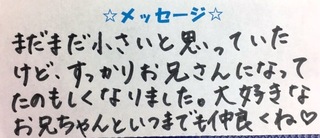 ☆メッセージ☆
まだまだ小さいと思っていた
けど、すっかりお兄さんになって
たのもしくなりました。大好きな
お兄ちゃんといつまでも仲良くね♡